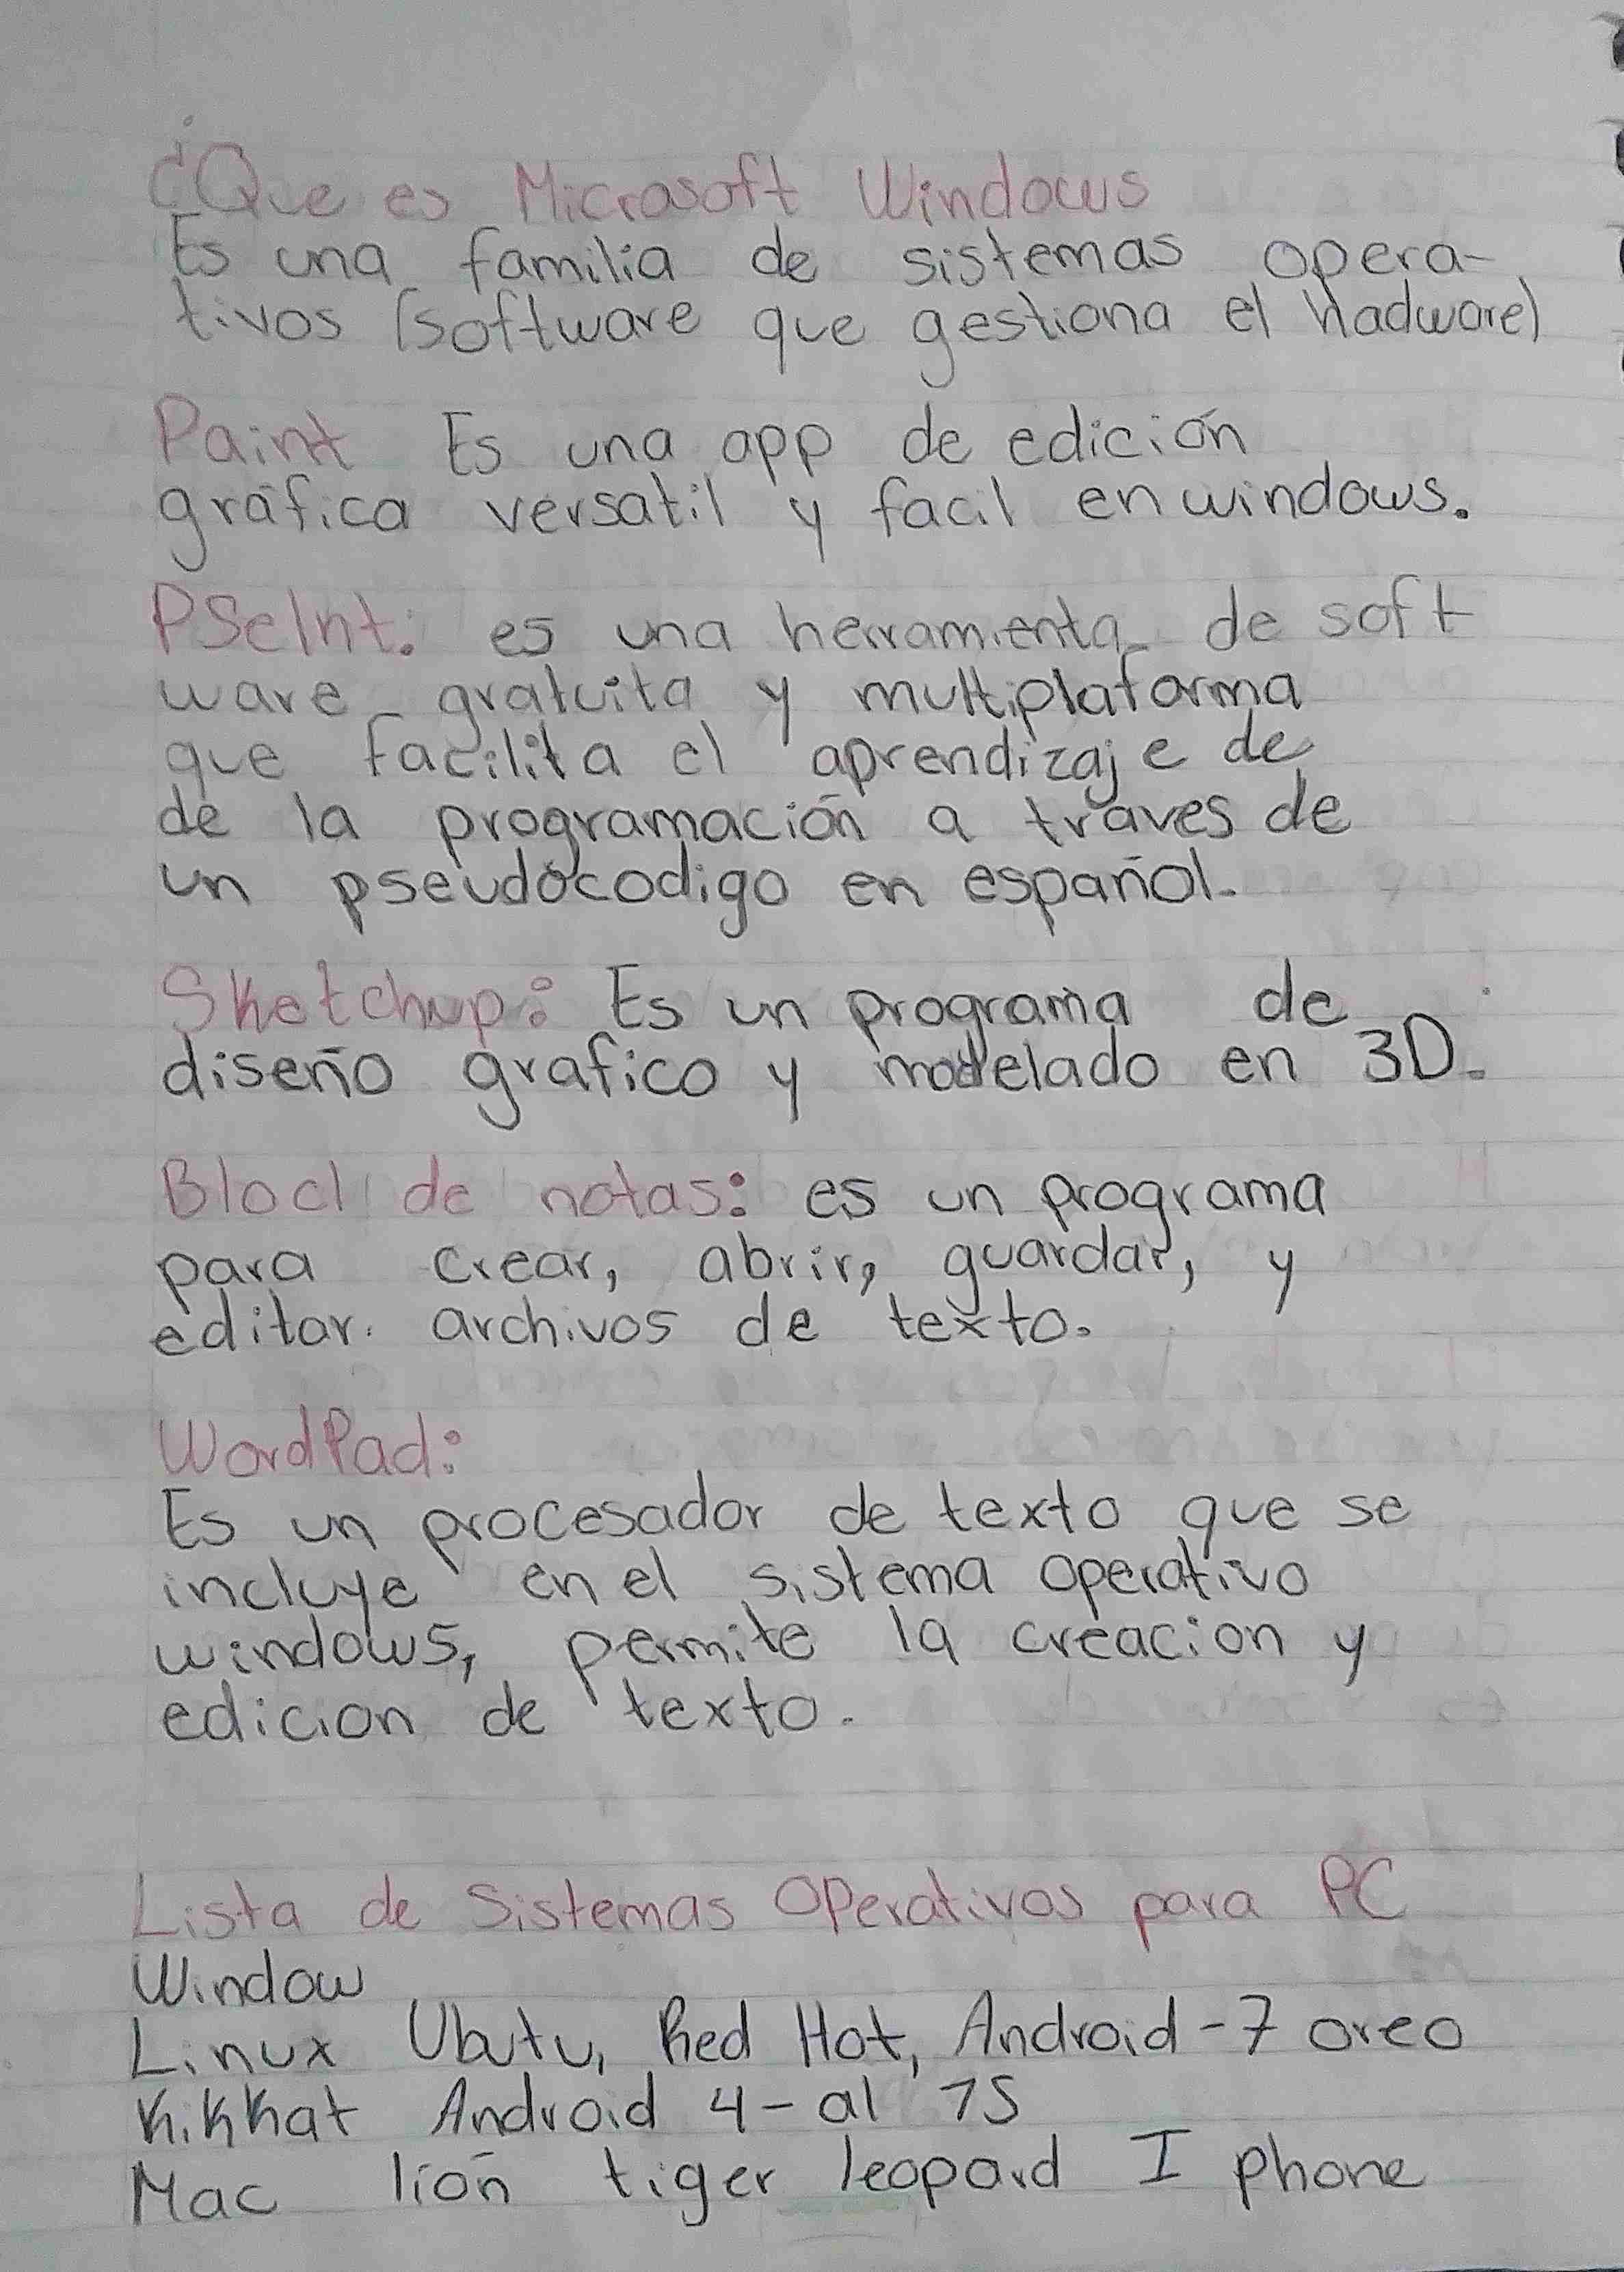 ¿Que es Microsoft Windows
Es una familia de sistemas opera-
tivos (software que gestiona el hadware)
Paint Es una app de edición
gráfica versatil y facil en windows.
PSeInt: es una herramienta de soft
ware gratuita y multiplataforma
que facilita el aprendizaje de
de la programación a traves de
un pseudocodigo en español.
Sketchup: Es un programa de
diseño grafico y modelado en 3D.
Blocl de notas: es un programa
para crear, abrir, guardar, y
editar archivos de texto.
WordPad:
Es un procesador de texto que se
incluye en el sistema operativo
windows, permite la creacion y
edicion de texto.
Lista de Sistemas Operativos para PC
Window
Linux Ubutu, Red Hot, Android - 7 oreo
KiKKat Android 4 - al 15
Mac lión tiger leopard I phone